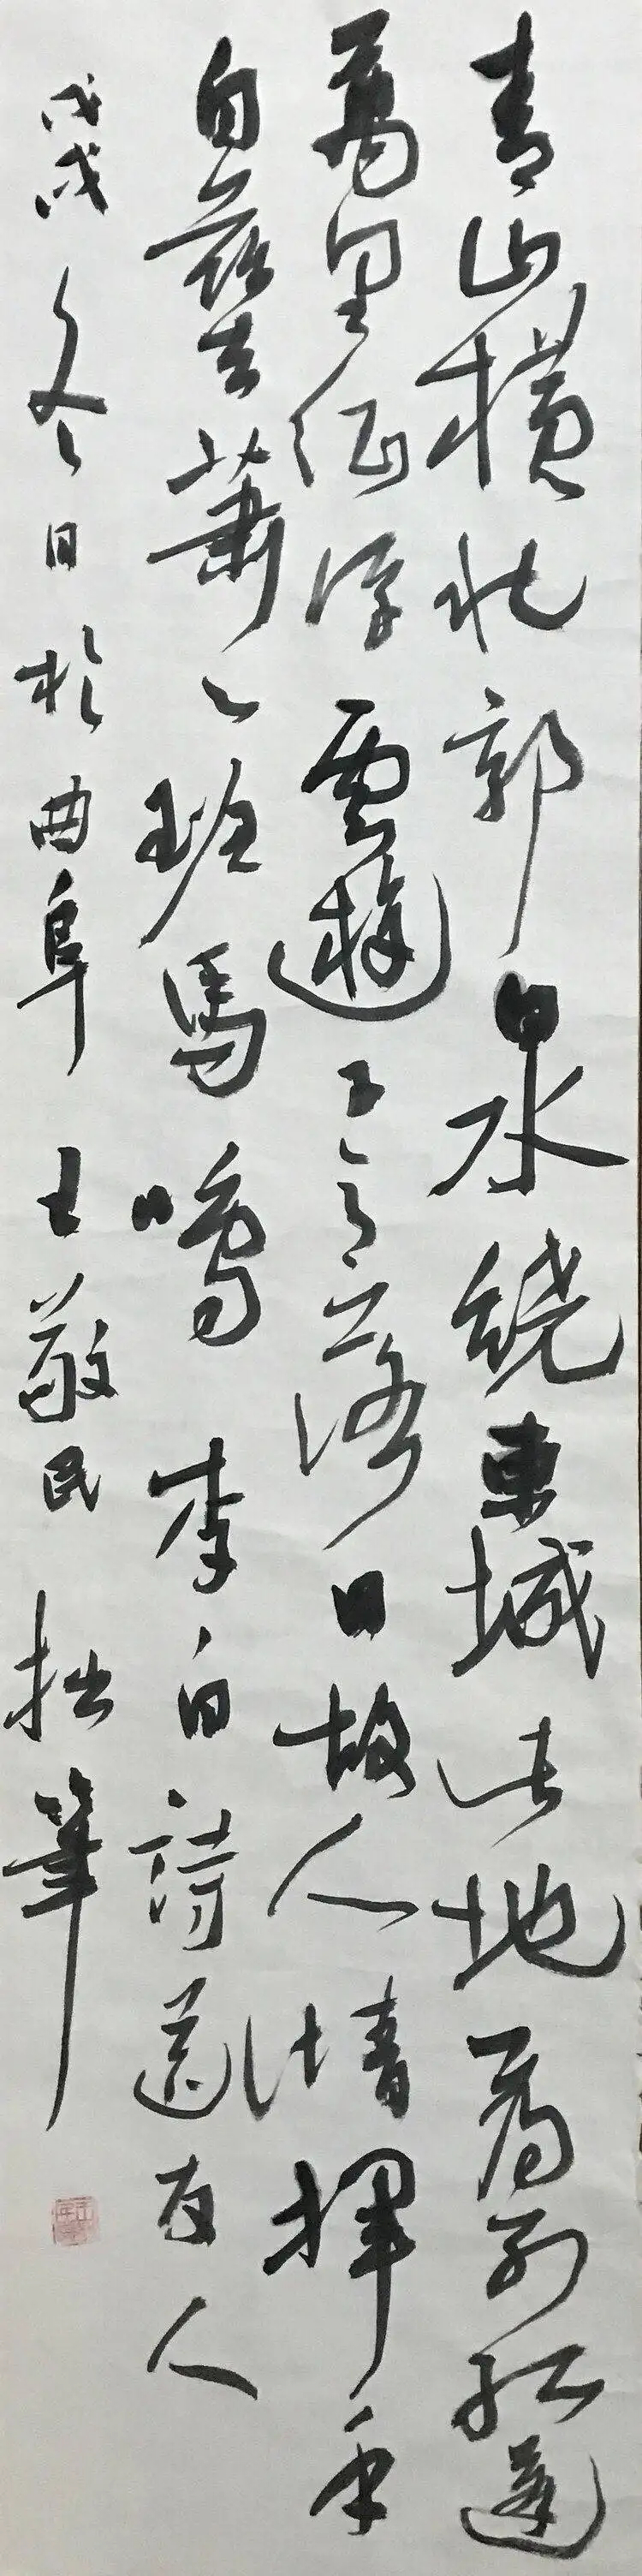 青山橫北郭白水繞東城此地一為別孤蓬
萬里征浮雲遊子意落日故人情揮手
自茲去蕭々班馬鳴 李白詩送友人
戊戌冬日於曲阜 王敬民 拙筆